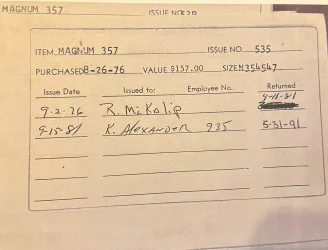 MAGNUM 357 ISSUE NO 530
ITEM MAGNUM 357 ISSUE NO. 535
PURCHASED 8-26-76 VALUE $157.00 SIZE N354547
Issue Date Issued to: Employee No. Returned
9-2-76 R. McKolip 9-11-81
9-15-81 K. ALEXANDER 935 5-31-91